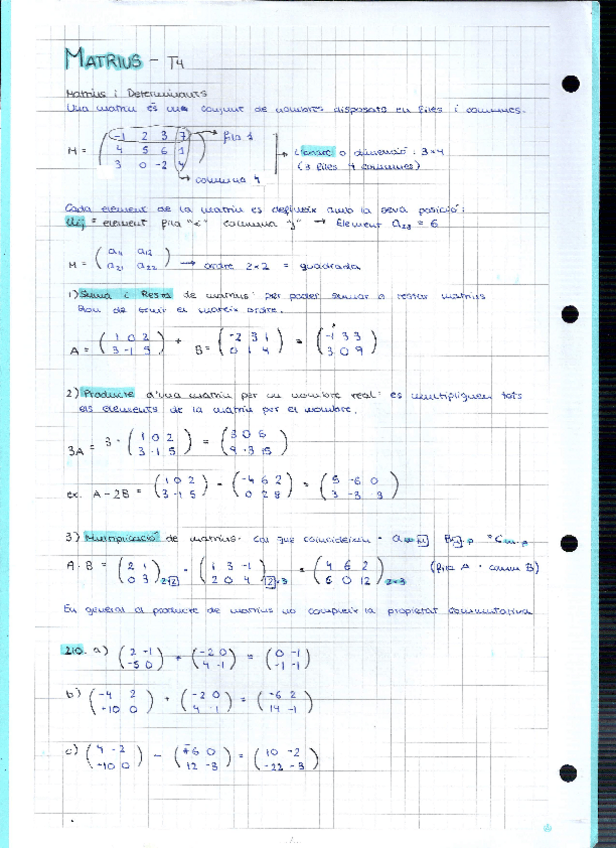 MATRIUS - T4
Matrius i Determinants
Una matriu és un conjunt de nombres disposats en files i columnes.
M = ( -1 2 3 7 → fila 1
4 5 6 1 → L'ordre o dimensió: 3x4
3 0 -2 4 ) (3 files 4 columnes)
→ columna 4
Cada element de la matriu es defineix amb la seva posició:
= element fila "i" columna "j" → Element a23 = 6
M = ( a11 a12
a21 a22 ) → ordre 2x2 = quadrada
1) Suma i Resta de matrius: per poder sumar o restar matrius
han de tenir el mateix ordre.
A = ( 1 0 2 + B = ( -2 3 1 = ( -1 3 3
3 -1 5 ) 0 1 4 ) 3 0 9 )
2) Producte d'una matriu per un nombre real: es multipliquen tots
els elements de la matriu per el nombre.
3A = 3 · ( 1 0 2 = ( 3 0 6
3 -1 5 ) 9 -3 15 )
ex. A - 2B = ( 1 0 2 - ( -4 6 2 = ( 5 -6 0
3 -1 5 ) 0 2 8 ) 3 -3 -3 )
3) Multiplicació de matrius. Cal que coincideixin
A · B = ( 2 1 · ( 1 3 -1 = ( 4 6 2 (fila A · colum B)
0 3 )2x2 2 0 4 )2x3 6 0 12 )2x3
En general el producte de matrius no compleix la propietat commutativa
210. a) ( 2 -1 + ( -2 0 = ( 0 -1
-5 0 ) 4 -1 ) -1 -1 )
b) ( -4 2 + ( -2 0 = ( -6 2
-10 0 ) 4 -1 ) 14 -1 )
c) ( 4 -2 - ( -6 0 = ( 10 -2
-10 0 ) 12 -3 ) -22 -3 )